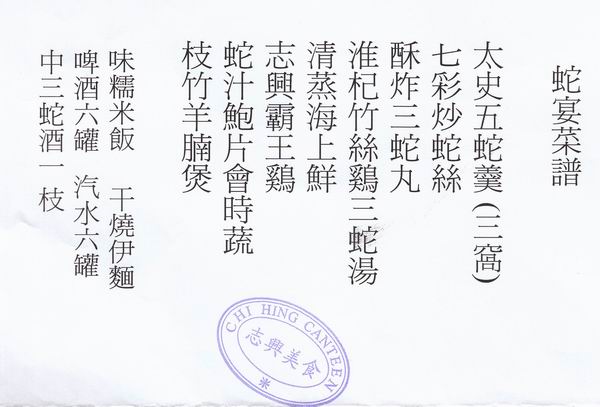 蛇宴菜譜
太史五蛇羹(三窩)
七彩炒蛇絲
酥炸三蛇丸
淮杞竹絲鷄三蛇湯
清蒸海上鮮
志興霸王鷄
蛇汁鮑片會時蔬
枝竹羊腩煲
味糯米飯 干燒伊麵
啤酒六罐 汽水六罐
中三蛇酒一枝
CHI HING CANTEEN
志興美食